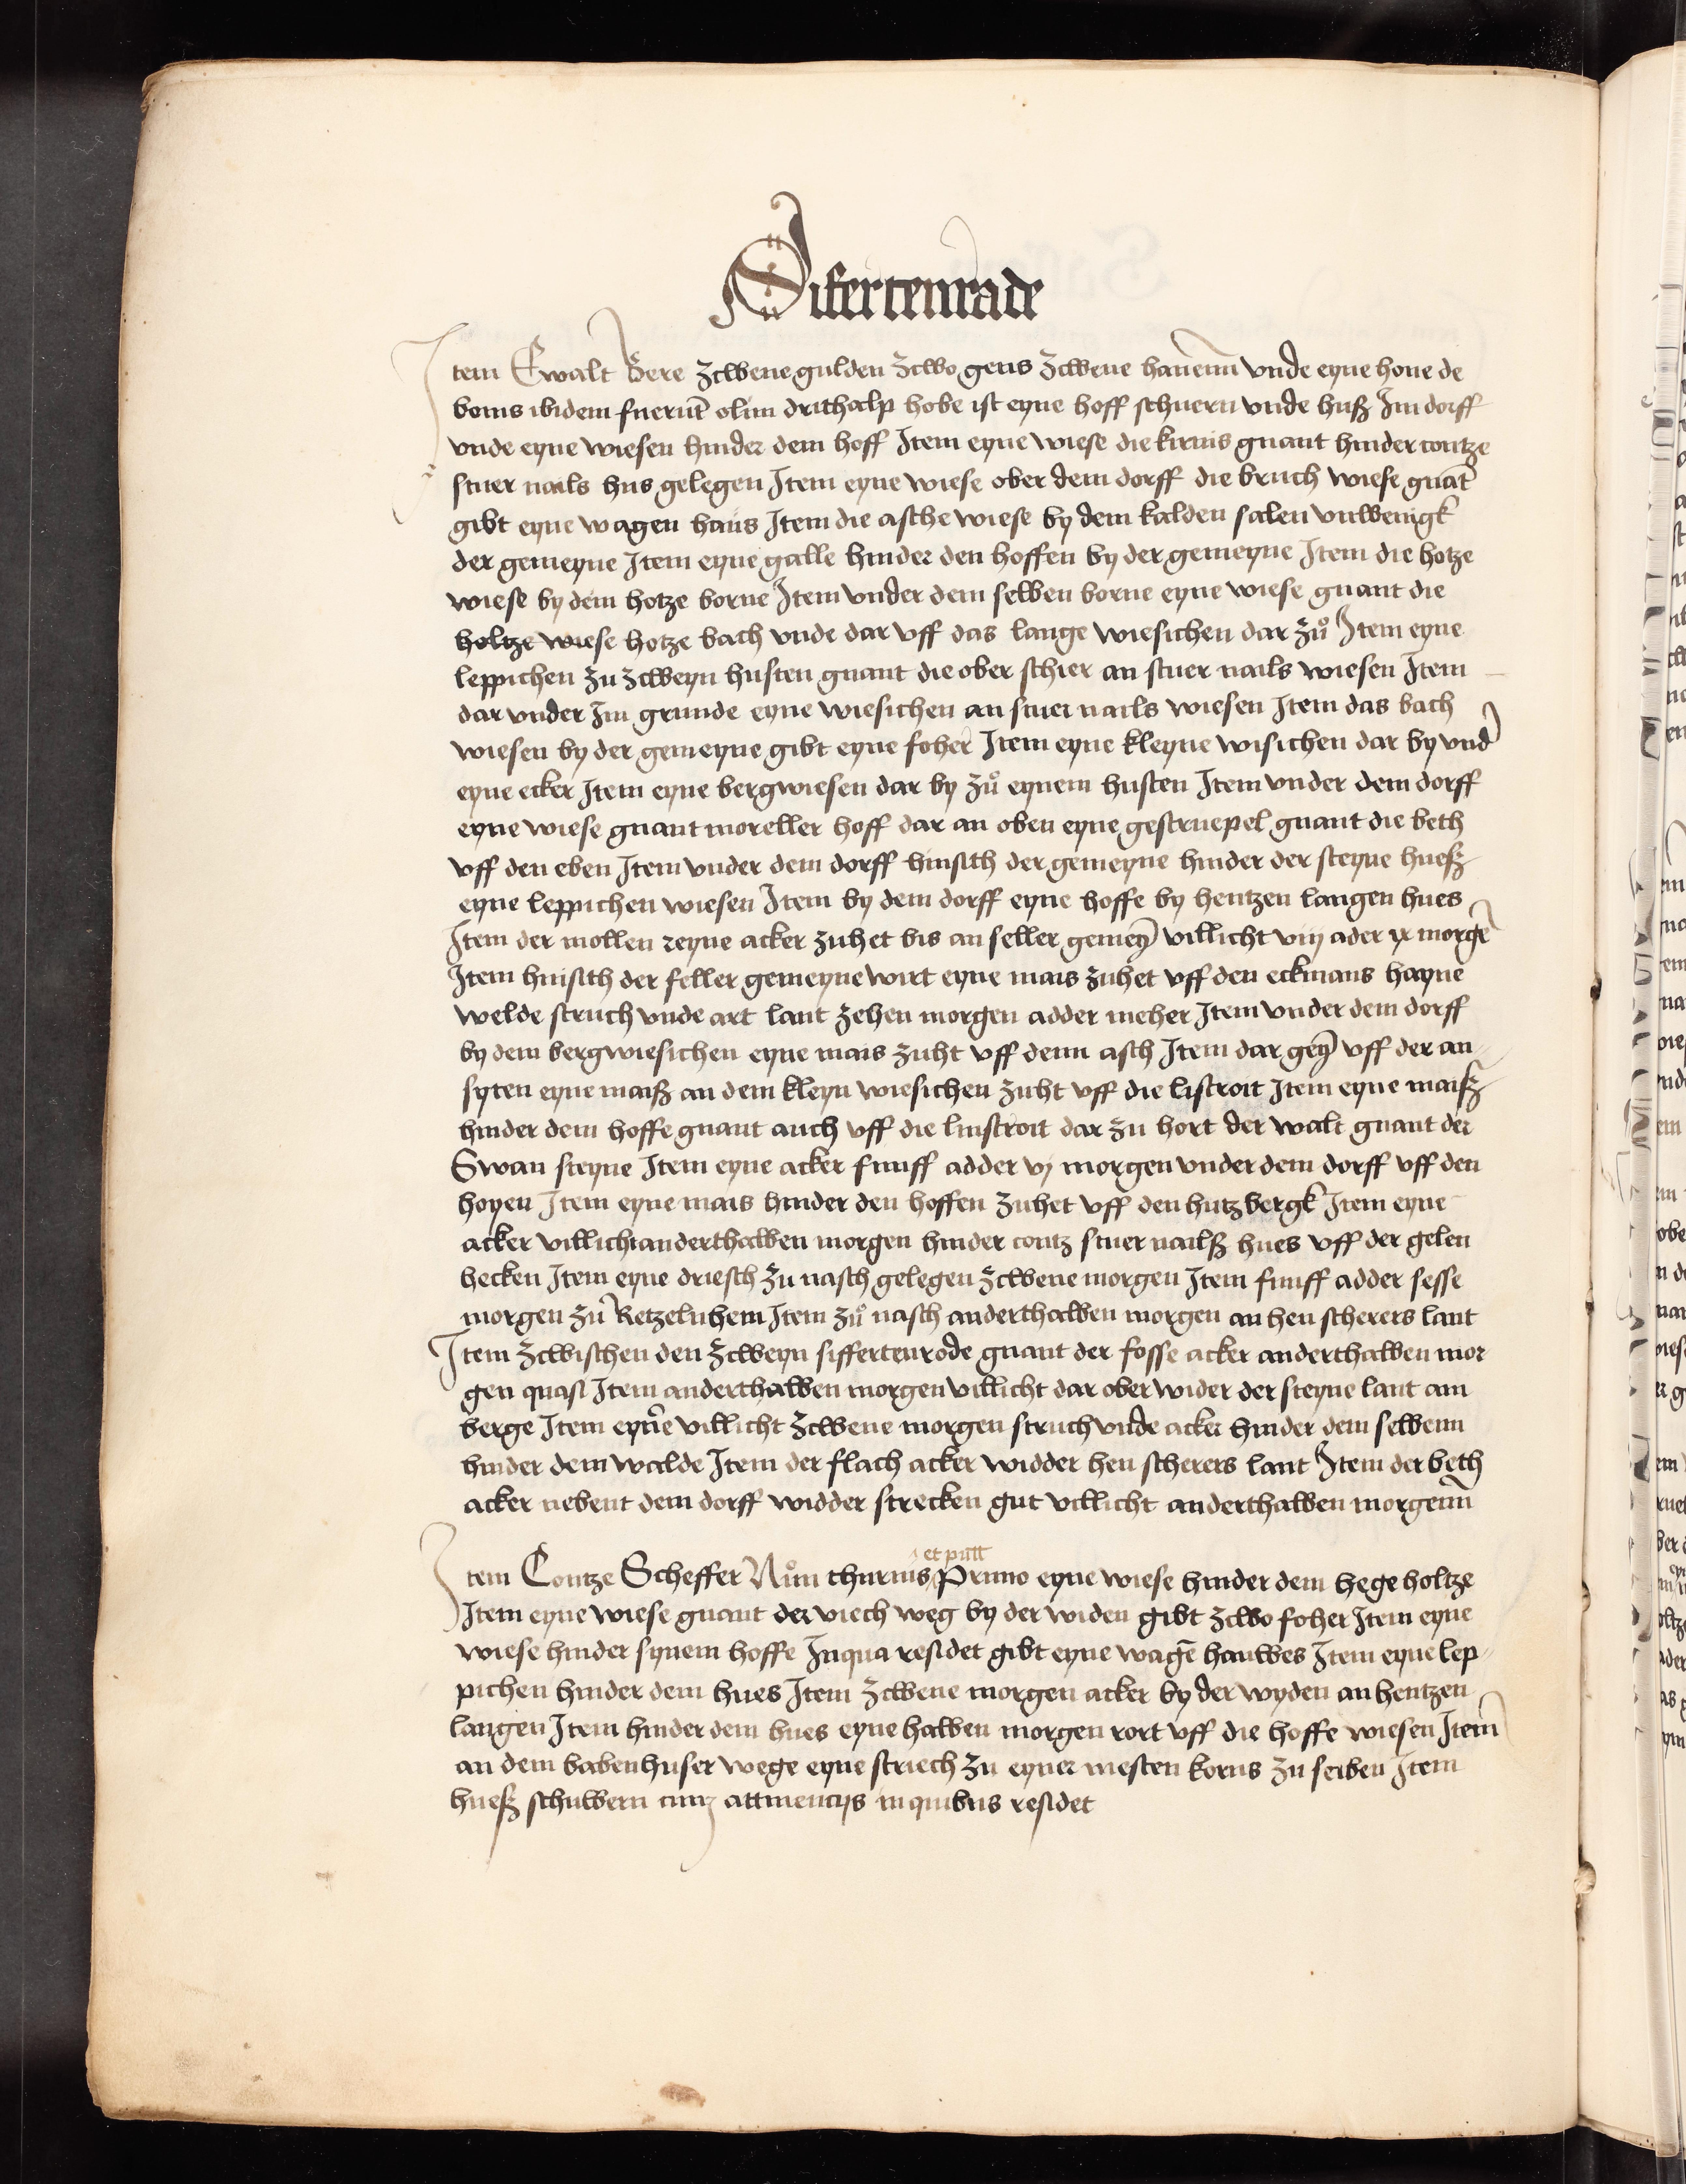 Sifertenrade
Item Ewalt Bere zcwene gulden zcwo gens zcwene hanenn vnde eyne hone de
bonis ibidem fuerūt olim drithalp hobe ist eyne hoff schuern vnde huß Im dorff
vnde eyne wiesen hinder dem hoff Item eyne wiese die kirnis gnant hinder contze
stuer nails hus gelegen Item eyne wiese ober dem dorff die bruch wiese gnāt
gibt eyne wagen haūs Item die asche wiese by dem kalden salen vnwenigk
der gemeyne Item eyne galle hinder den hoffen by der gemeyne Item die hotze
wiese by dem hotze borne Item vnder dem selben borne eyne wiese gnant die
holtze wiese hotze bach vnde dar vff das lange wiesichen dar zů Item eyne
leppichen zu zcweyn husten gnant die ober schier an stuer nails wiesen Item
dar vnder Im grunde eyne wiesichen an stuer nails wiesen Item das bach
wiesen by der gemeyne gibt eyne foher Item eyne kleyne wisichen dar by vnd
eyne ecker Item eyne bergwiesen dar by zů eynem husten Item vnder dem dorff
eyne wiese gnant moreller hoff dar an oben eyne gestruepel gnant die beth
vff den eben Item vnder dem dorff hinsith der gemeyne hinder der steyne hueß
eyne leppichen wiesen Item by dem dorff eyne hoffe by hentzen langen hues
Item der mollen reyne acker zuhet bis an seller gemeyn̄ villicht viij ader ix morgē
Item hinsith der seller gemeyne wirt eyne mais zuhet vff den eckmans hayne
welde struch vnde art lant zehen morgen adder meher Item vnder dem dorff
by dem bergwiesichen eyne mais zuht vff denn asch Item dar geyn̄ vff der an
syten eyne maiß an dem kleyn wiesichen zuht vff die listroit Item eyne maiß
hinder dem hoffe gnant auch vff die linstroit dar zu hort der walt gnant der
Swan steyne Item eyne acker funff adder vj morgen vnder dem dorff vff den
hoyen Item eyne mais hinder den hoffen zuhet vff den hutzbergk Item eyne
acker villicht anderthalben morgen hinder contz stuer nailß hues vff der gelen
hecken Item eyne driesch zu nasch gelegen zcwene morgen Item funff adder sesse
morgen zu Retzelnhem Item zů nasch anderthalben morgen an hen scherers lant
Item zcwischen den zcweyn siffertenrode gnant der fosse acker anderthalben mor
gen quasi Item anderthalben morgen villicht dar ober wider der steyne lant am
berge Item eyne villicht zcwene morgen struch vnde acker hinder dem selbenn
hinder dem walde Item der flach acker widder hen scherers lant Item der beth
acker nebent dem dorff widder strecken gut villicht anderthalben morgenn
et pull
Item Contze Scheffer Nůn thurnis Primo eyne wiese hinder dem hege holtze
Item eyne wiese gnant der viech weg by der widen gibt zcwo foher Item eyne
wiese hinder synem hoffe Inqua residet gibt eyne wagē hauwes Item eyne lep
pichen hinder dem hues Item zcwene morgen acker by der wyden an hentzen
langen Item hinder dem hues eyne halben morgen rort vff die hoffe wiesen Item
an dem babenhuser wege eyne striech zu eyner mesten korns zu seiben Item
hueß schuwern cum attinencijs in quibus residet